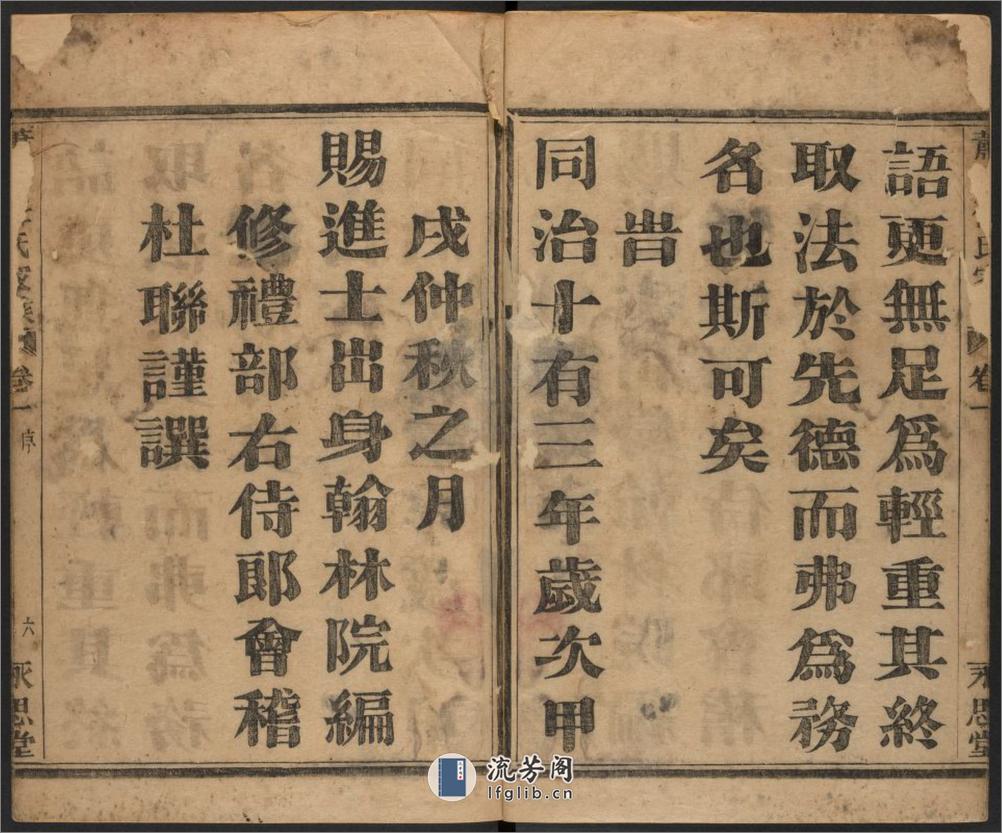 語更無足爲輕重其終
取法於先德而弗爲務
名也斯可矣
旹
同治十有三年歲次甲
戌仲秋之月
賜進士出身翰林院編
修禮部右侍郎會稽
杜聯謹譔
氏 卷一
永思堂
氏 卷一 序
六
永思堂
流芳阁
lfglib.cn